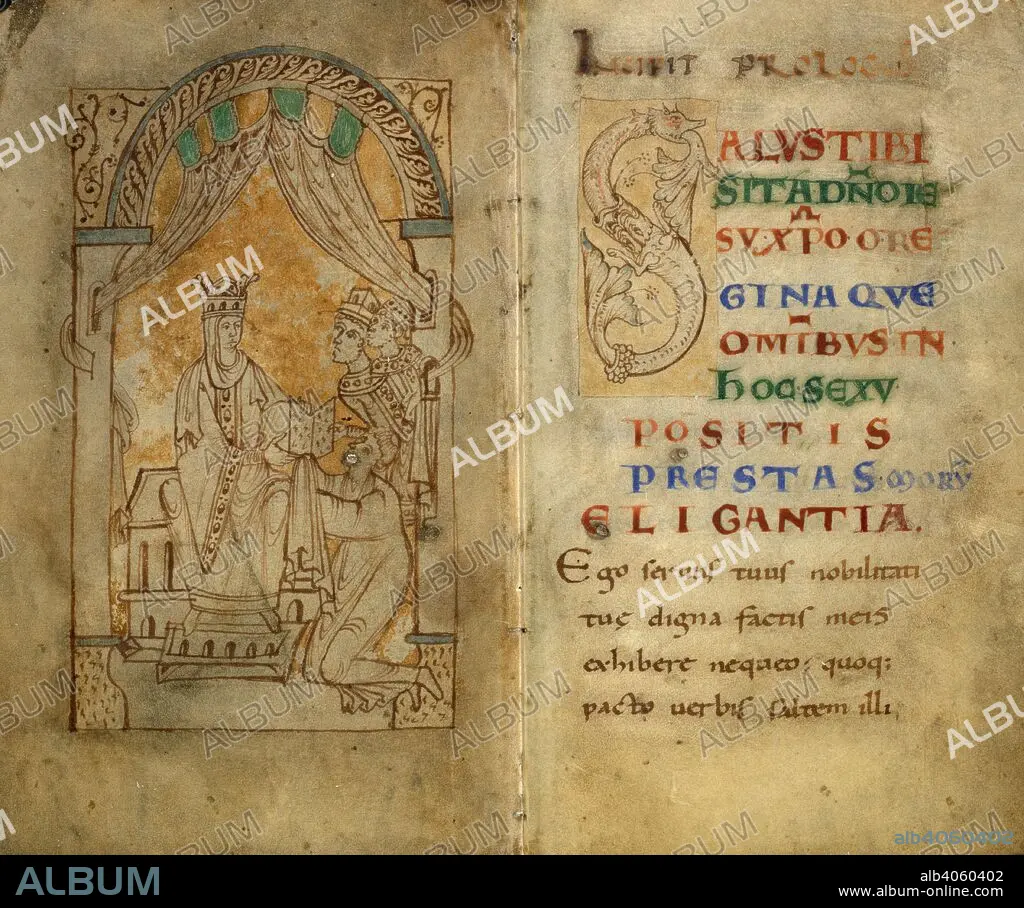 Incipit PROLOGUS
SALVSTIBI
SITADÑOIE
SV·XPO·ORE
GINAQVE
OMIBVSIN
hOCSEXV
POSITIS
PRESTAS·MORV̄
ELIGANTIA.
Ego seruus tuus nobilitati
tuę digna factis meis
exhibere nequeo; quoq;
pacto uerbis saltem illi
ALBUM
alb4060402
ALBUM
alb4060402
www.album-online.com